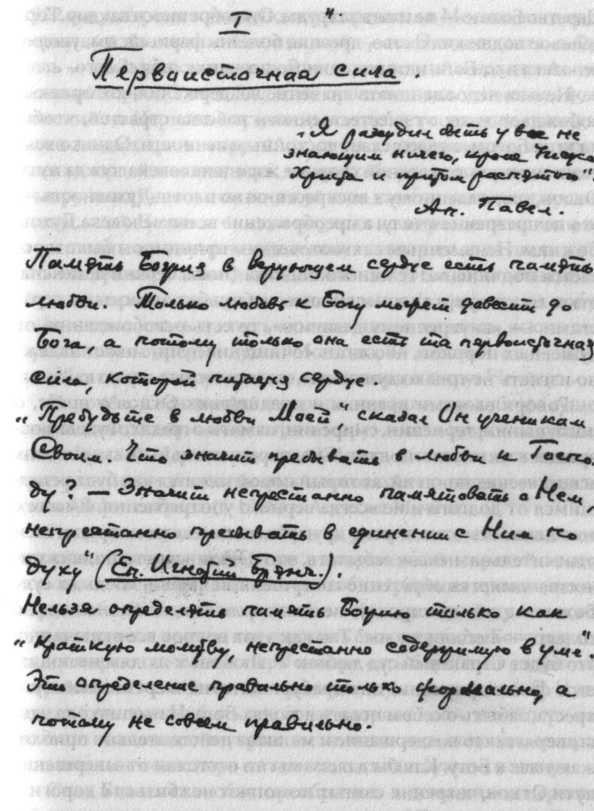 I 4.
Первоисточная сила.
„Я рассудил быть у вас не
знающим ничего, кроме Иисуса
Христа и притом распятого".
Ап. Павел.
Память Божия в верующем сердце есть память
любви. Только любовь к Богу может довести до
Бога, а потому только она есть та первоисточная
сила, которой питается сердце.
„Пребудьте в любви Моей", сказал Он ученикам
Своим. Что значит пребывать в любви к Госпо-
ду? — Значит непрестанно памятовать о Нем,
непрестанно пребывать в единении с Ним по
духу" (Еп. Игнатий Брянч.).
Нельзя определять память Божию только как
„краткую молитву, непрестанно содержимую в уме".
Это определение правильно только формально, а
потому не совсем правильно.